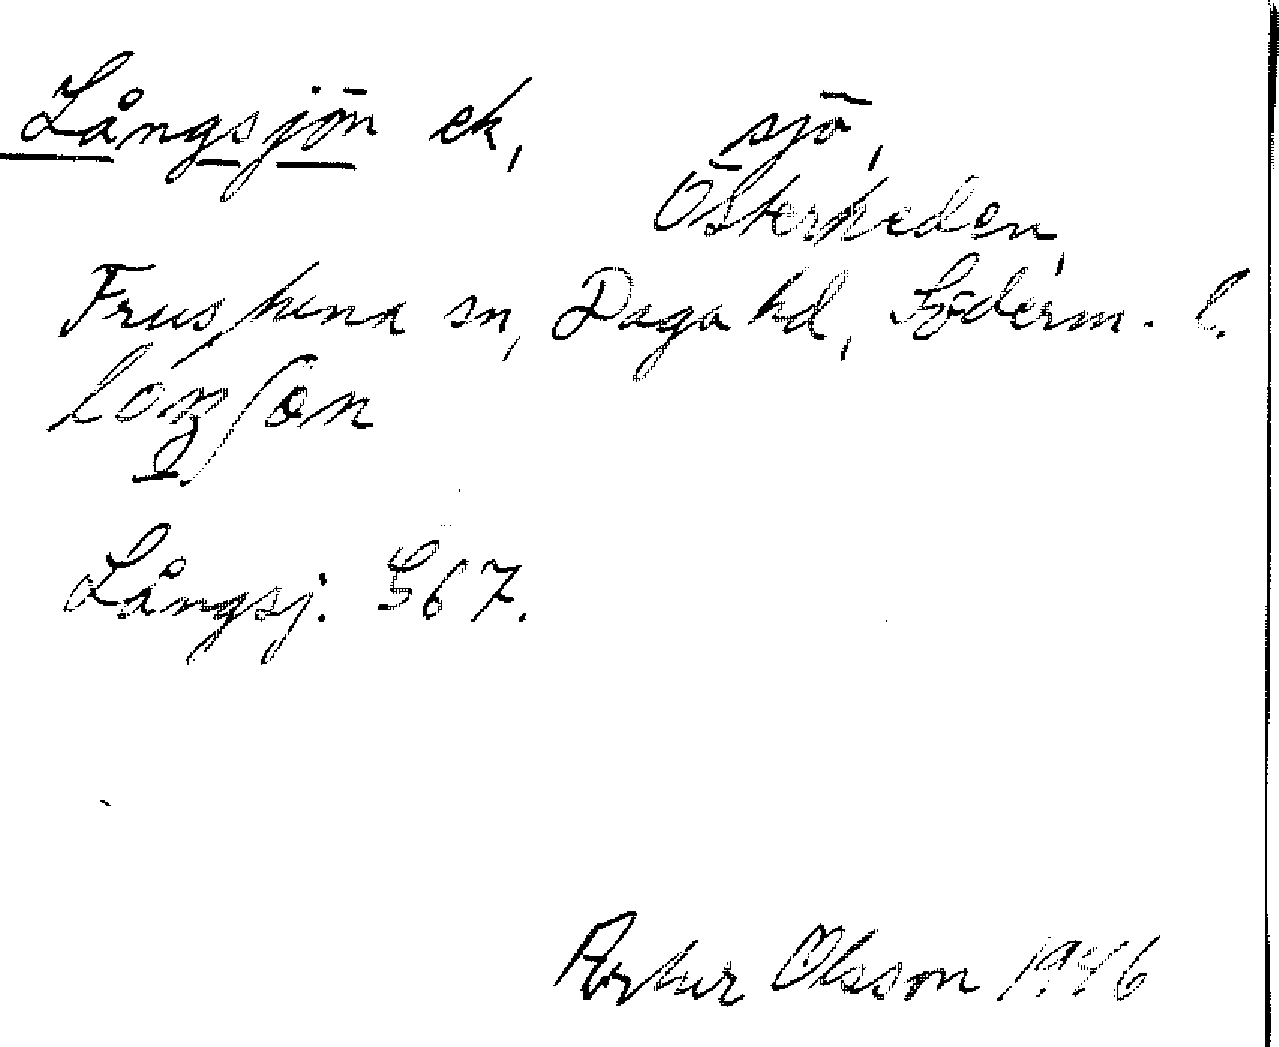 Långsjön ek, sjö,
Österheden,
Frustuna sn, Daga hd, Söderm. l.
Långsj. S67.
Artur Olsson 1946